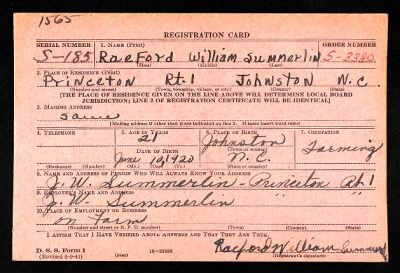 1565
REGISTRATION CARD
SERIAL NUMBER 1. NAME (Print) ORDER NUMBER
S-185 Raeford William Summerlin S-3380
(First) (Middle) (Last)
2. PLACE OF RESIDENCE (Print)
Princeton Rt. 1 Johnston N.C.
(Number and street) (Town, township, village, or city) (County) (State)
[THE PLACE OF RESIDENCE GIVEN ON THE LINE ABOVE WILL DETERMINE LOCAL BOARD
JURISDICTION; LINE 2 OF REGISTRATION CERTIFICATE WILL BE IDENTICAL]
3. MAILING ADDRESS
same
[Mailing address if other than place indicated on line 2. If same insert word same]
4. TELEPHONE 5. AGE IN YEARS 6. PLACE OF BIRTH 7. OCCUPATION
21 Johnston
DATE OF BIRTH (Town or county) Farming
June 10, 1920 N.C.
(Mo.) (Day) (Yr.) (State or country)
8. NAME AND ADDRESS OF PERSON WHO WILL ALWAYS KNOW YOUR ADDRESS
J. W. Summerlin - Princeton Rt. 1
9. EMPLOYER'S NAME AND ADDRESS
J. W. Summerlin
10. PLACE OF EMPLOYMENT OR BUSINESS
on farm
(Number and street or R. F. D. number) (Town) (County) (State)
I AFFIRM THAT I HAVE VERIFIED ABOVE ANSWERS AND THAT THEY ARE TRUE.
D. S. S. Form 1 Raeford William Summerlin
(Revised 6-9-41) (Registrant's signature)